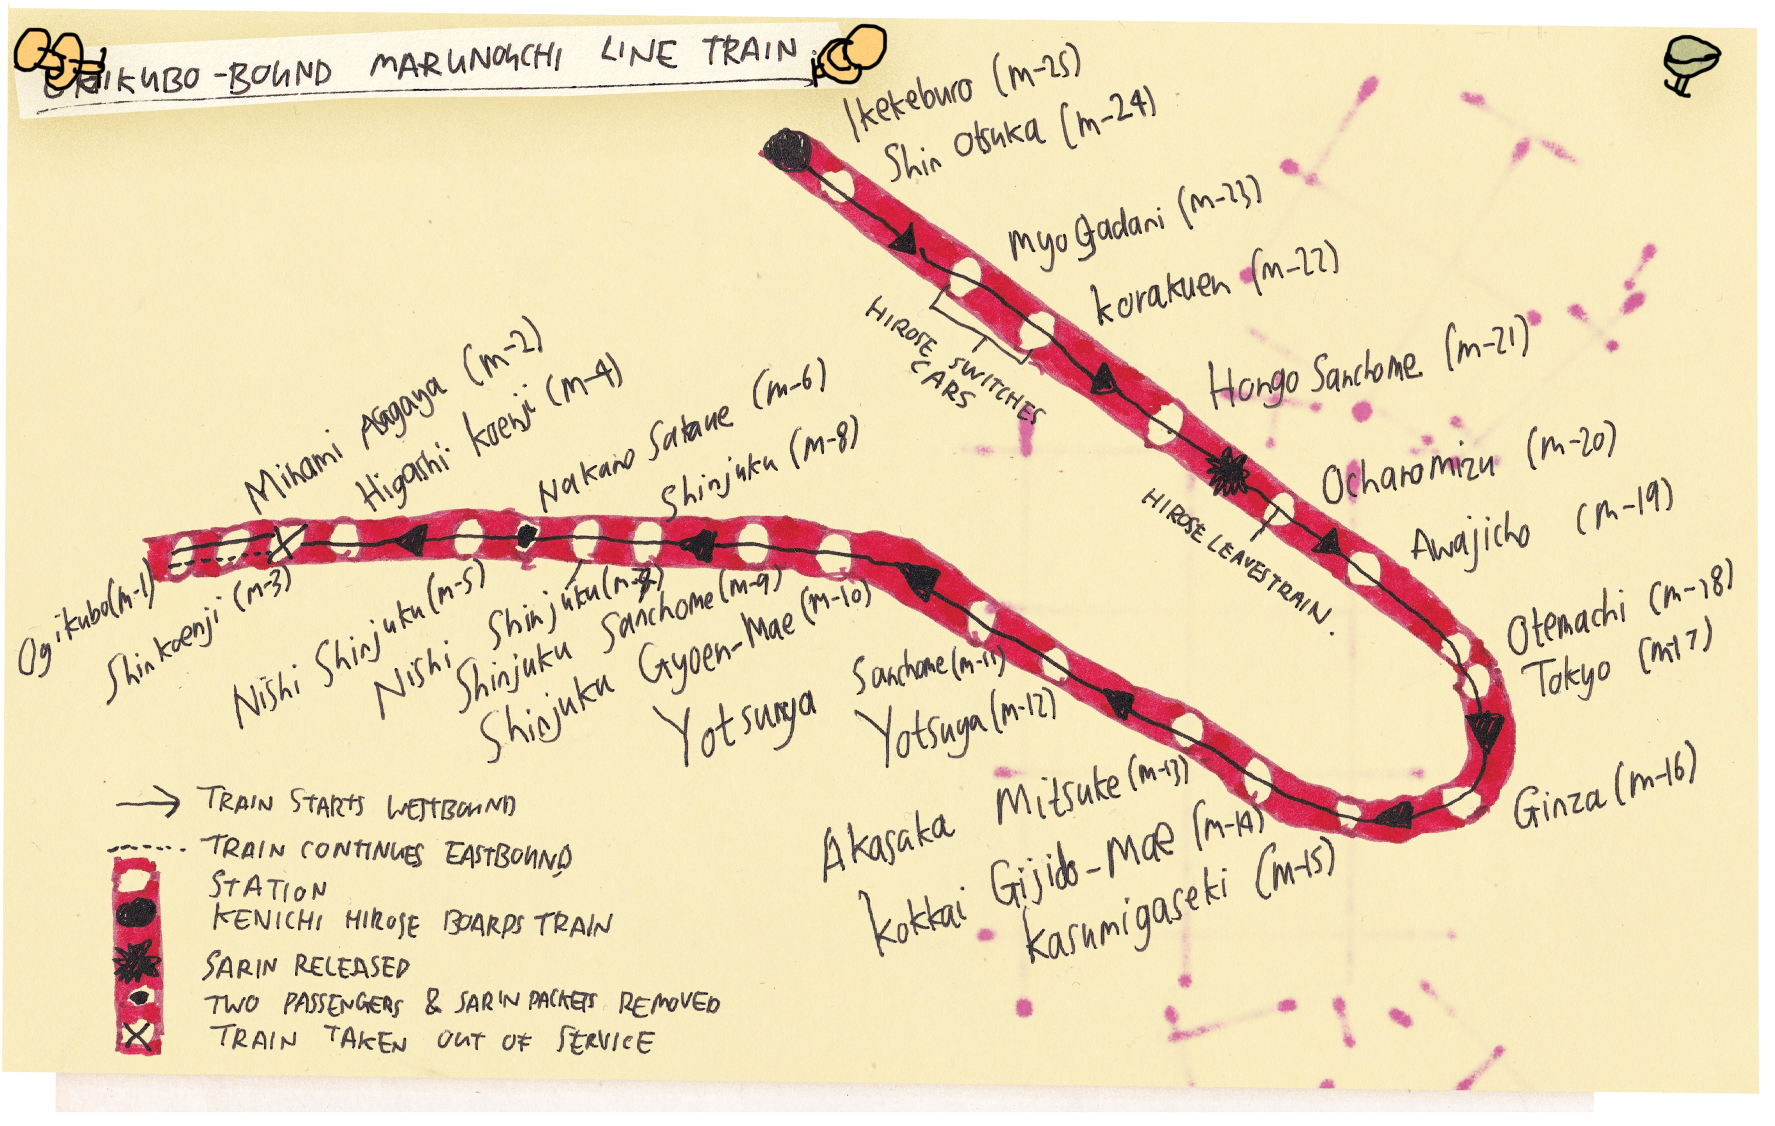 OGIKUBO-BOUND MARUNOUCHI LINE TRAIN
Ikekeburo (m-25)
Shin Otsuka (m-24)
Myogadani (m-23)
Korakuen (m-22)
HIROSE SWITCHES
CARS
Hongo Sanchome (m-21)
Ocharomizu (m-20)
HIROSE LEAVES TRAIN.
Awajicho (m-19)
Otemachi (m-18)
Tokyo (m17)
Ginza (m-16)
Kasumigaseki (m-15)
Kokkai Gijido-Mae (m-14)
Akasaka Mitsuke (m-13)
Yotsuya (m-12)
Yotsunya Sanchome (m-11)
Shinjuku Gyoen-Mae (m-10)
Shinjuku Sanchome (m-9)
Shinjuku (m-8)
Nishi Shinjuku (m-7)
Nakano Sataue (m-6)
Nishi Shinjuku (m-5)
Higashi Koenji (m-4)
Shinkoenji (m-3)
Minami Asagaya (m-2)
Ogikubo (m-1)
TRAIN STARTS WESTBOUND
TRAIN CONTINUES EASTBOUND
STATION
KENICHI HIROSE BOARDS TRAIN
SARIN RELEASED
TWO PASSENGERS & SARIN PACKETS REMOVED
TRAIN TAKEN OUT OF SERVICE